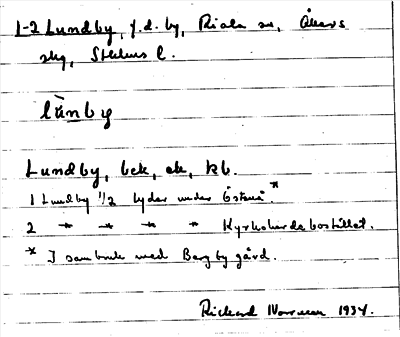 1-2 Lundby, f.d. by, Riala sn, Åkers
skg, Sthlms l.
lùnby
Lundby, bck, ek, kb.
1 Lundby 1/2 lyder under Östanå.*
2 " " " " Kyrkoherdebostället.
* I sambruk med Bergby gård.
Rickard Norman 1934.